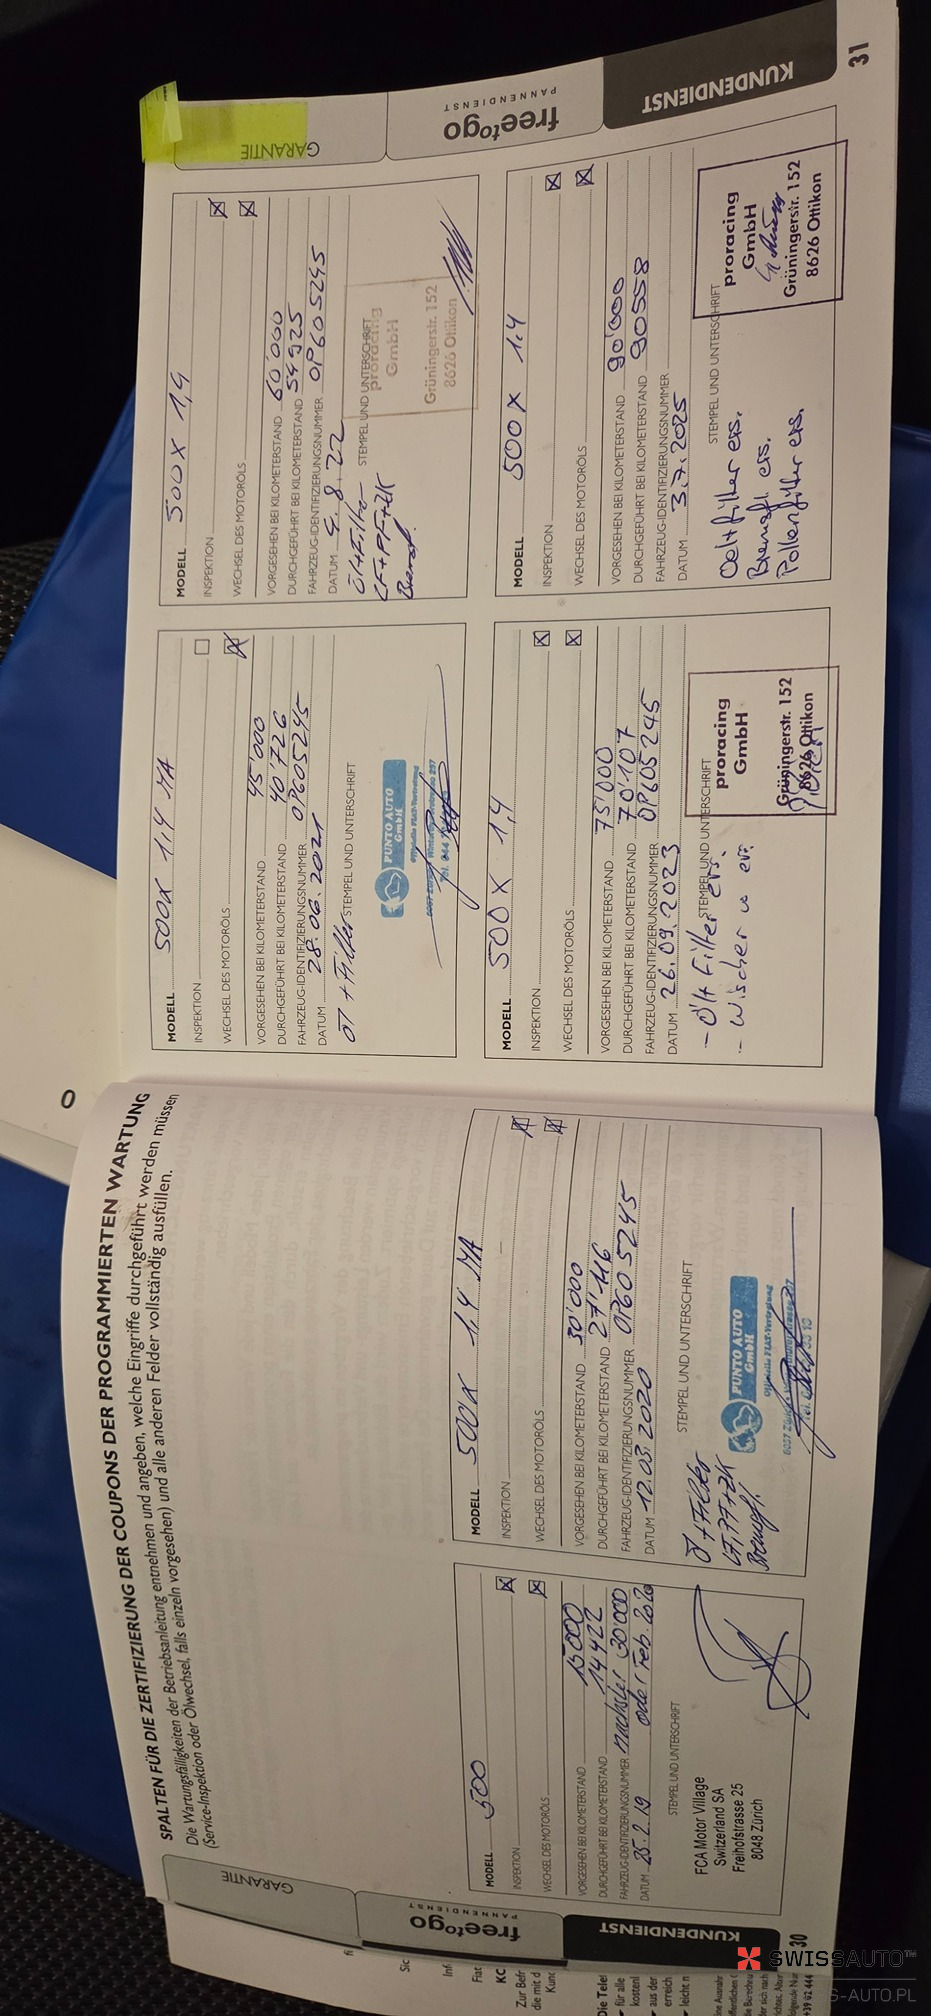 SPALTEN FÜR DIE ZERTIFIZIERUNG DER COUPONS DER PROGRAMMIERTEN WARTUNG
Die Wartungsfälligkeiten der Betriebsanleitung entnehmen und angeben, welche Eingriffe durchgeführt werden müssen
(Service-Inspektion oder Ölwechsel, falls einzeln vorgesehen) und alle anderen Felder vollständig ausfüllen.
MODELL 500
INSPEKTION
WECHSEL DES MOTORÖLS
VORGESEHEN BEI KILOMETERSTAND 15000
DURCHGEFÜHRT BEI KILOMETERSTAND 14422
FAHRZEUG-IDENTIFIZIERUNGSNUMMER nächster 30'000
DATUM 25.2.19 oder Feb. 2020
STEMPEL UND UNTERSCHRIFT
FCA Motor Village
Switzerland SA
Freihofstrasse 25
8048 Zürich
MODELL 500X 1,4 MA
INSPEKTION
WECHSEL DES MOTORÖLS
VORGESEHEN BEI KILOMETERSTAND 30'000
DURCHGEFÜHRT BEI KILOMETERSTAND 27'116
FAHRZEUG-IDENTIFIZIERUNGSNUMMER 0P605245
DATUM 12.03.2020
STEMPEL UND UNTERSCHRIFT
Öl + Filter
Bremsfl.
PUNTO AUTO
GmbH
GARANTIE
free to go
PANNENDIENST
KUNDENDIENST
30
MODELL 500X 1.4 MA
INSPEKTION
WECHSEL DES MOTORÖLS
VORGESEHEN BEI KILOMETERSTAND 45'000
DURCHGEFÜHRT BEI KILOMETERSTAND 40'726
FAHRZEUG-IDENTIFIZIERUNGSNUMMER 0P605245
DATUM 28.06.2021
Öl + Filter STEMPEL UND UNTERSCHRIFT
PUNTO AUTO
GmbH
MODELL 500X 1,4
INSPEKTION
WECHSEL DES MOTORÖLS
VORGESEHEN BEI KILOMETERSTAND 60'000
DURCHGEFÜHRT BEI KILOMETERSTAND 54925
FAHRZEUG-IDENTIFIZIERUNGSNUMMER 0P605245
DATUM 4.8.22
Öl+Filter STEMPEL UND UNTERSCHRIFT
LF+PF+ZK
proracing
GmbH
Grüningerstr. 152
8626 Ottikon
MODELL 500X 1,4
INSPEKTION
WECHSEL DES MOTORÖLS
VORGESEHEN BEI KILOMETERSTAND 75'000
DURCHGEFÜHRT BEI KILOMETERSTAND 70'107
FAHRZEUG-IDENTIFIZIERUNGSNUMMER 0P605245
DATUM 26.09.2023
STEMPEL UND UNTERSCHRIFT
- Öl+ Filter ers.
- Wischer
proracing
GmbH
Grüningerstr. 152
8626 Ottikon
MODELL 500X 1.4
INSPEKTION
WECHSEL DES MOTORÖLS
VORGESEHEN BEI KILOMETERSTAND 90'000
DURCHGEFÜHRT BEI KILOMETERSTAND 90558
FAHRZEUG-IDENTIFIZIERUNGSNUMMER
DATUM 3.7.2025
STEMPEL UND UNTERSCHRIFT
Oel+filter ers.
Bremsfl. ers.
Pollenfilter ers.
proracing
GmbH
Grüningerstr. 152
8626 Ottikon
GARANTIE
free to go
PANNENDIENST
KUNDENDIENST
31
SWISSAUTO™